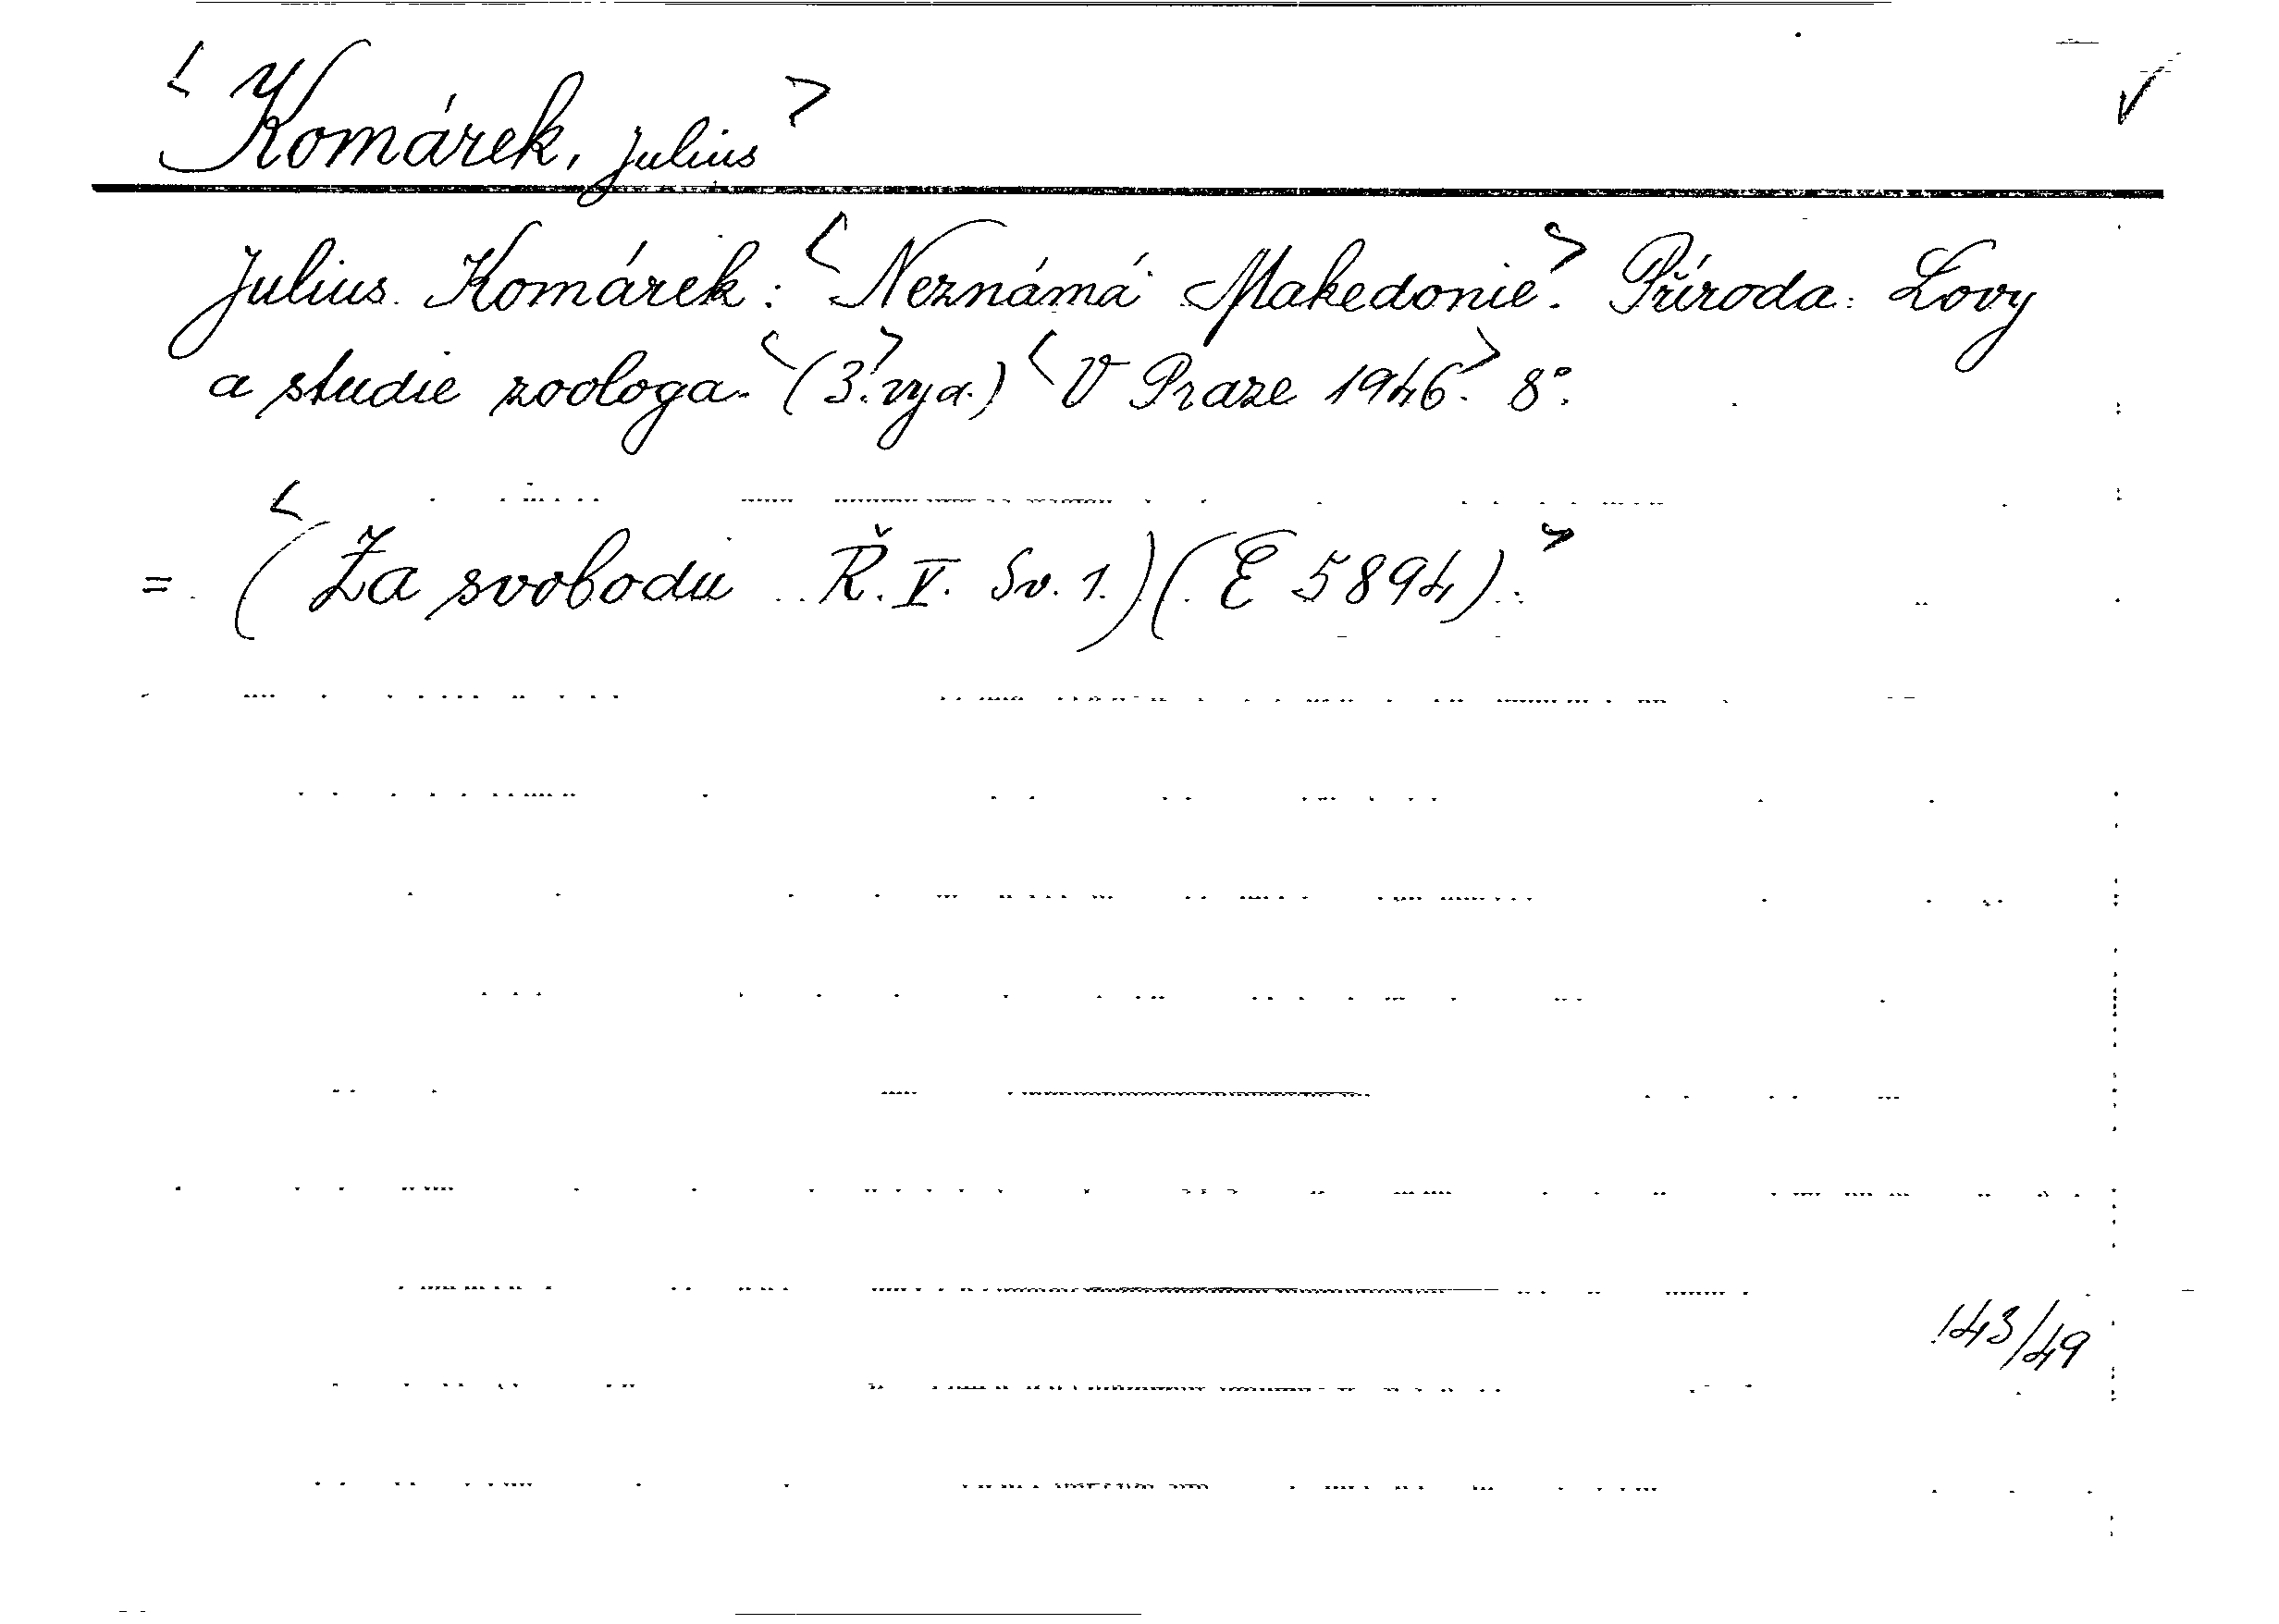 <Komárek, Julius>
Julius Komárek: <Neznámá Makedonie.> Příroda. Lovy
a studie zoologa. <(3.> vyd.) <V Praze 1946.> 8°.
= <(Za svobodu Ř. V. Sv. 1.) (E 5894).>
143/49